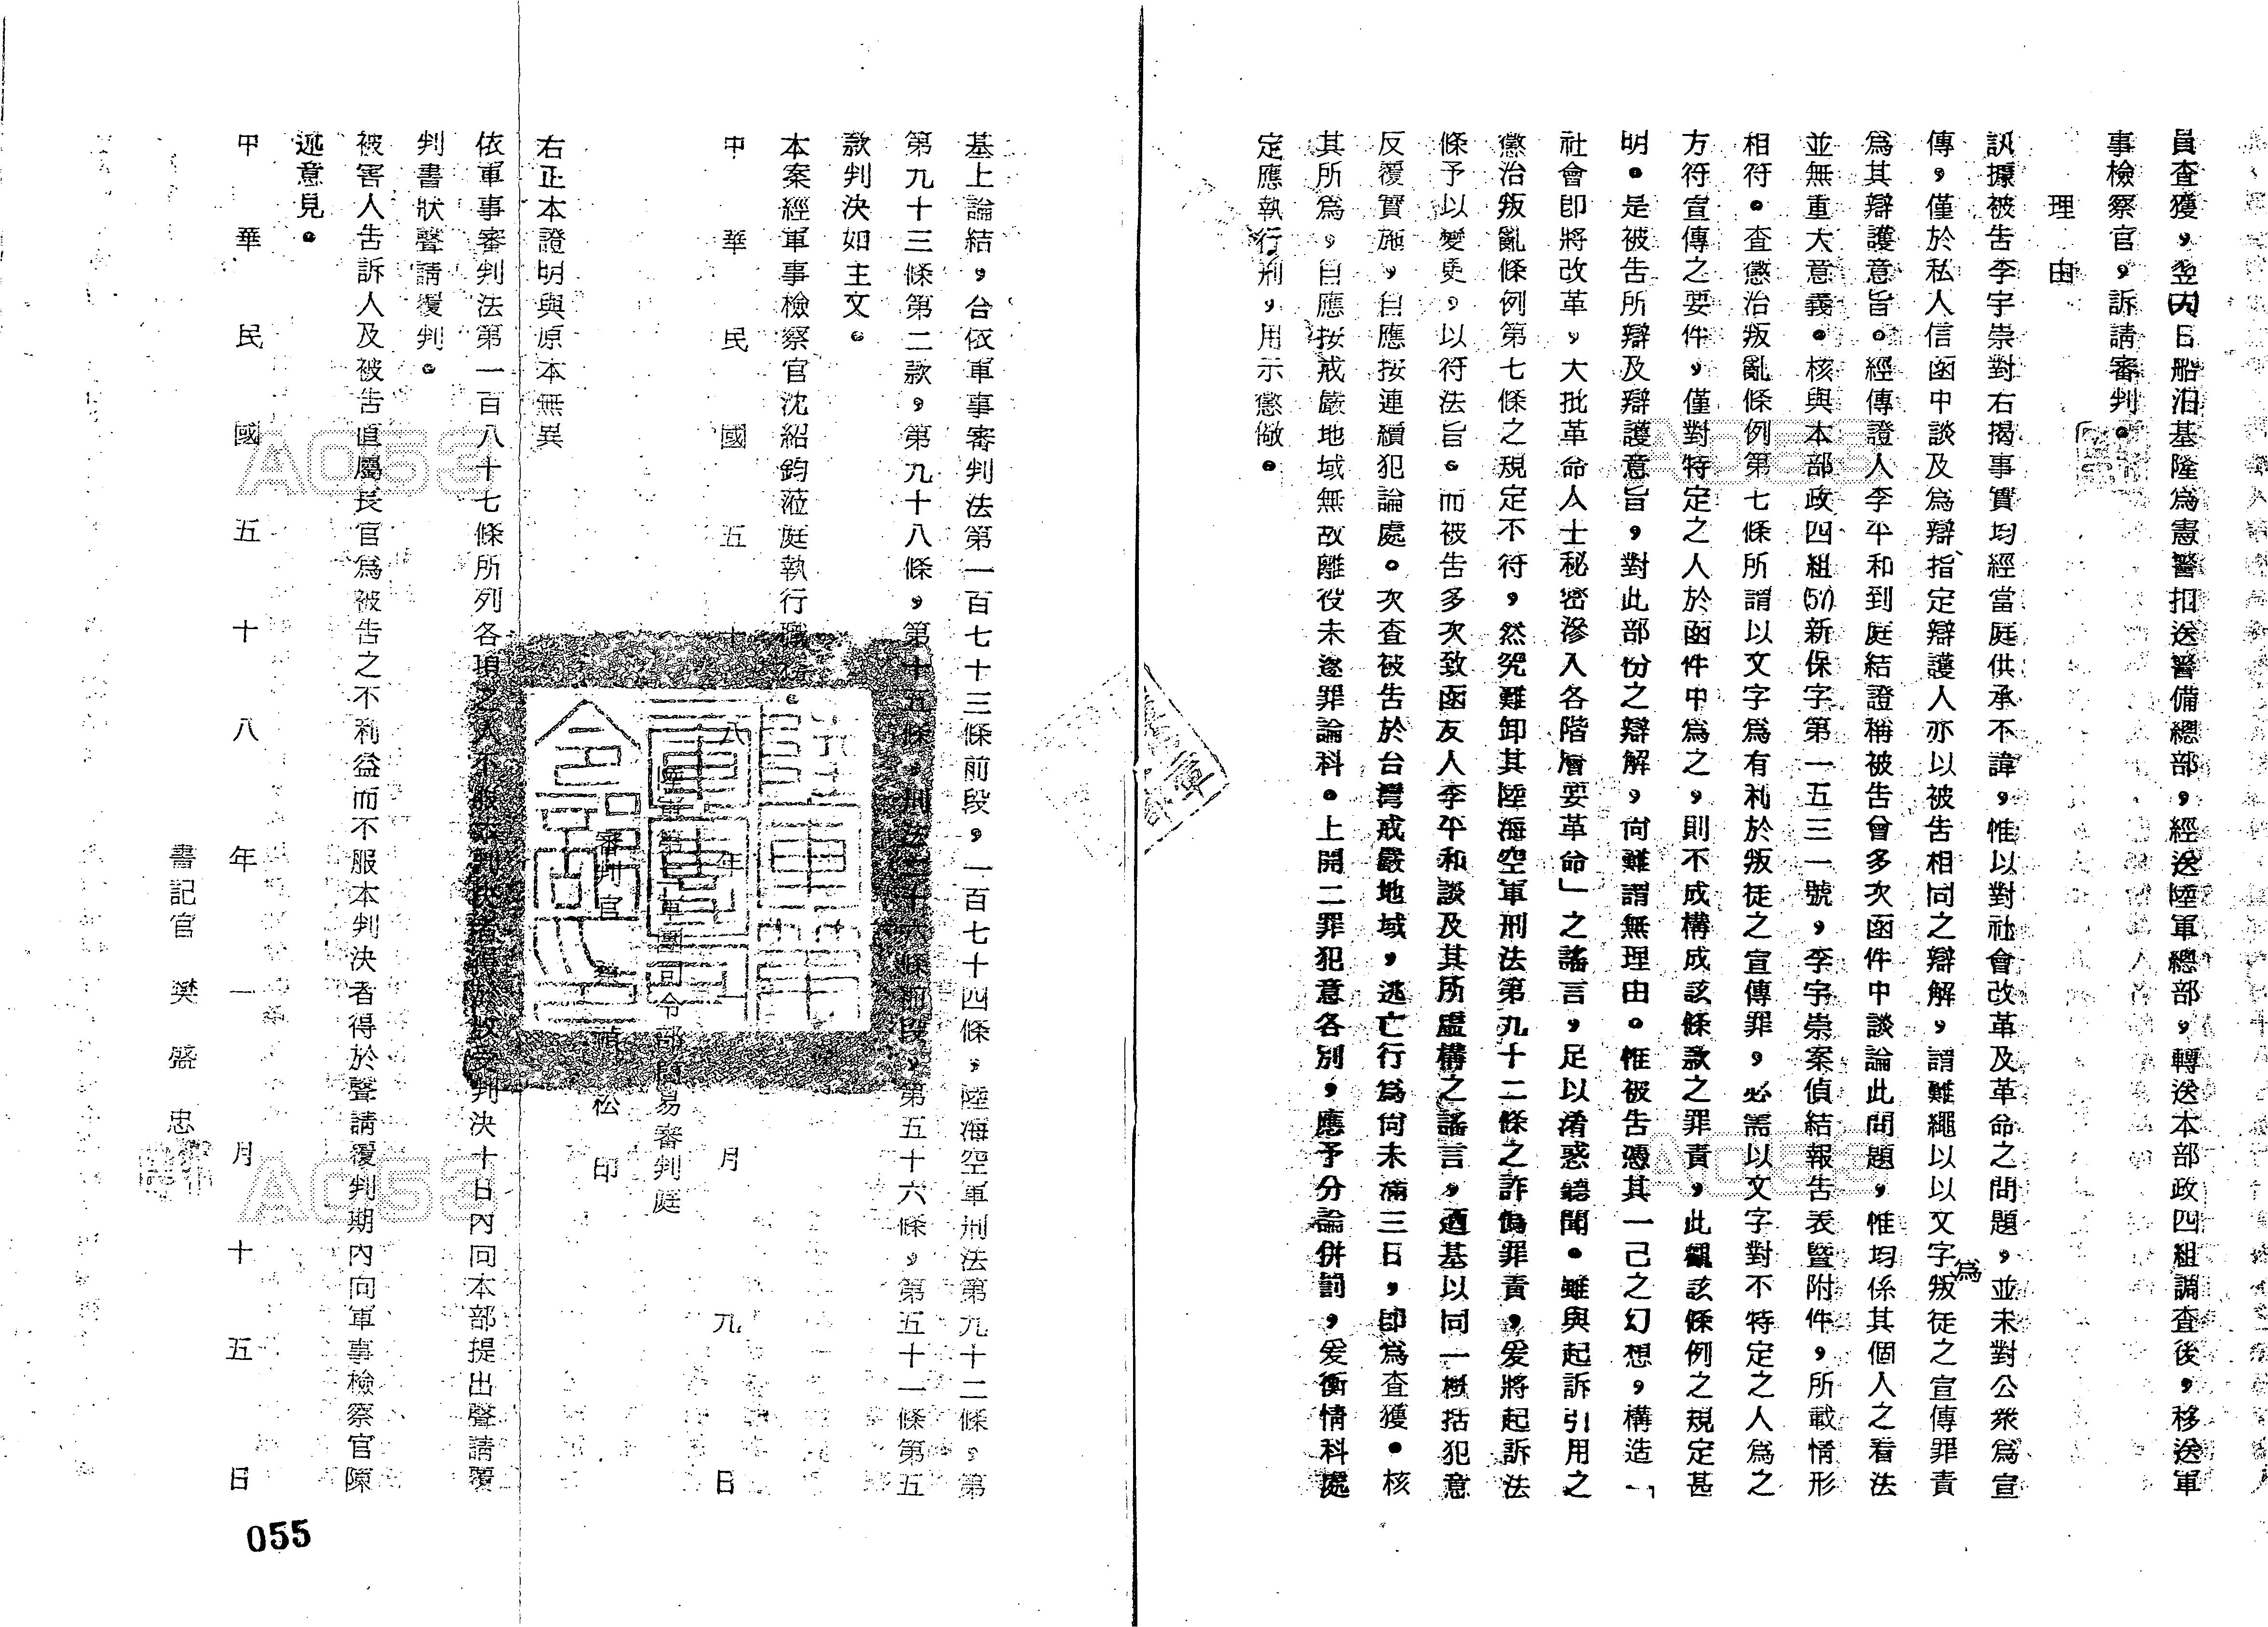 員查獲，翌(丙)日船泊基隆為憲警扣送警備總部，經送陸軍總部，轉送本部政四組調查後，移送軍
事檢察官，訴請審判。
理由
訊據被告李宇崇對右揭事實均經當庭供承不諱，惟以對社會改革及革命之問題，並未對公眾為宣
傳，僅於私人信函中談及為辯，指定辯護人亦以被告相同之辯解，謂難繩以以文字叛徒之宣傳罪責
為
為其辯護意旨。經傳證人李平和到庭結證稱被告曾多次函件中談論此問題，惟均係其個人之看法
並無重大意義。核與本部政四組(57)新保字第一五三一號，李宇崇案偵結報告表暨附件，所載情形
相符。查懲治叛亂條例第七條所謂以文字為有利於叛徒之宣傳罪，必需以文字對不特定之人為之
方符宣傳之要件，僅對特定之人於函件中為之，則不成構成該條款之罪責，此觀該條例之規定甚
明。是被告所辯及辯護意旨，對此部份之辯解，尚難謂無理由。惟被告憑其一己之幻想，構造「
社會即將改革，大批革命人士秘密滲入各階層要革命」之謠言，足以淆惑聽聞。雖與起訴引用之
懲治叛亂條例第七條之規定不符，然究難卸其陸海空軍刑法第九十二條之詐偽罪責，爰將起訴法
條予以變更，以符法旨。而被告多次致函友人李平和談及其所虛構之謠言，迺基以同一概括犯意
反覆實施，自應按連續犯論處。次查被告於台灣戒嚴地域，逃亡行為尚未滿三日，即為查獲。核
其所為，自應按戒嚴地域無故離役未遂罪論科。上開二罪犯意各別，應予分論併罰，爰衡情科處
定應執行刑，用示懲儆。
基上論結，合依軍事審判法第一百七十三條前段，一百七十四條，陸海空軍刑法第九十二條，第
第九十三條第二款，第九十八條，第十五條，刑法二十六條前段，第五十六條，第五十一條第五
款判決如主文。
本案經軍事檢察官沈紹鈞蒞庭執行職務。
中華民國五十八年一月九日
陸軍第一軍團司令部簡易審判庭
審判官 禎松 印
右正本證明與原本無異
依軍事審判法第一百八十七條所列各項之人不服本判決者得於收受判決十日內向本部提出聲請覆
判書狀聲請覆判。
被害人告訴人及被告直屬長官為被告之不利益而不服本判決者得於聲請覆判期內向軍事檢察官陳
述意見。
中華民國五十八年一月十五日
書記官 樊盛忠
055
AC53
AC53
AC53
AC53